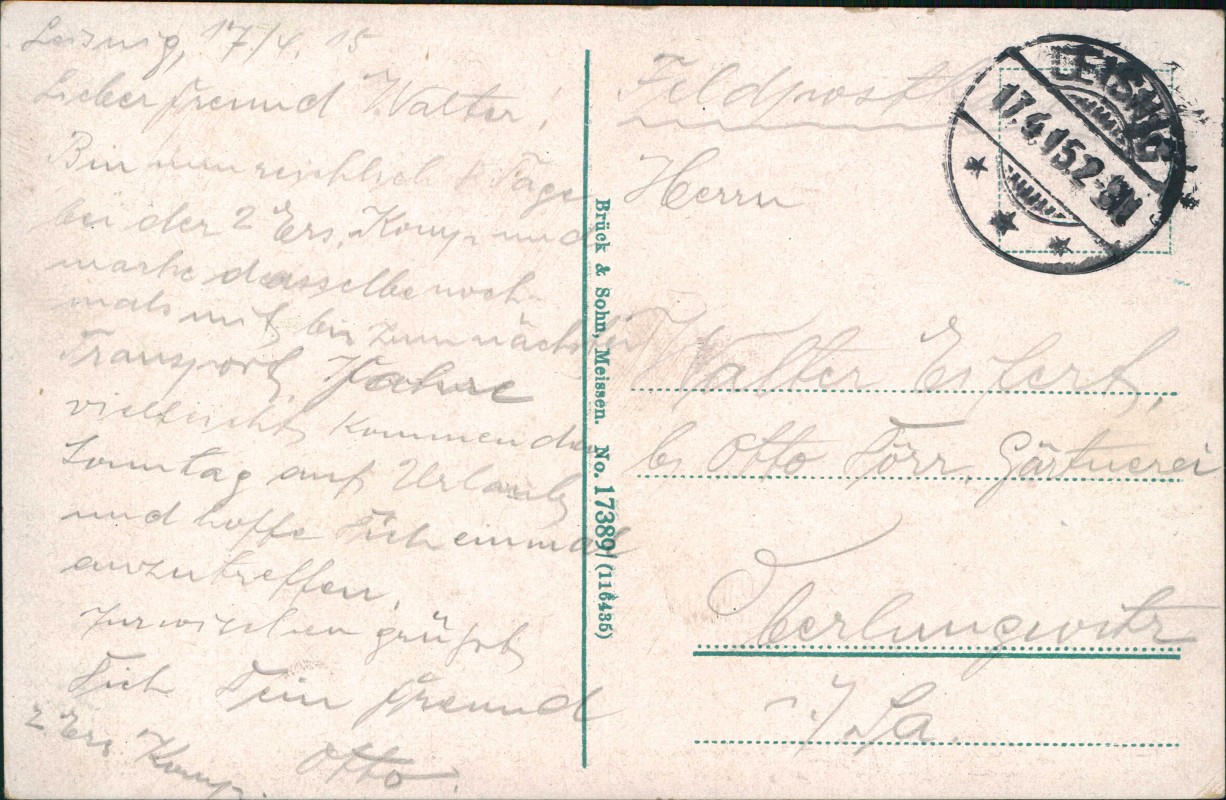 Leisnig, 17/4. 15
Lieber Freund Walter!
Bin nun reichlich 8 Tage
bei der 2 Ers. Komp. und
mache dasselbe noch-
mals mit bis zum nächsten
Transport.
vielleicht kommenden
Sonntag auf Urlaub
und hoffe Dich einmal
anzutreffen.
Inzwischen grüßt
Dich Dein Freund
Otto
2 Ers. Komp.
Brück & Sohn, Meissen. No. 17389/(116435)
Feldpost
LEISNIG
17.4.15.2-3N
Herrn
Walter
b. Otto Gärtnerei
Oberlungwitz
i/Sa.